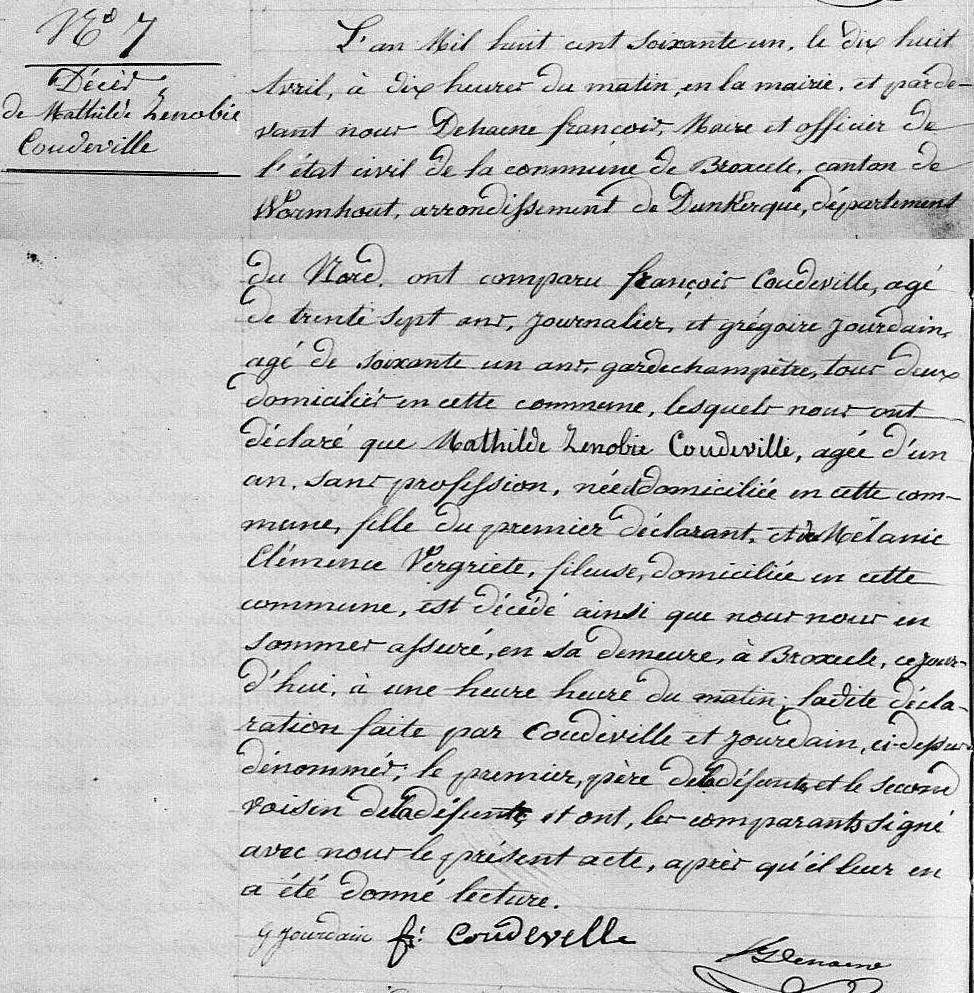 N° 7
Décès
de Mathilde Zenobie
Coudeville
L'an Mil huit cent soixante un, le dix huit
Avril, à dix heures du matin, en la mairie, et parde-
vant nous Dehaene françois, Maire et officier de
l'état civil de la commune de Broxeele, canton de
Wormhout, arrondissement de Dunkerque, département
du Nord, ont comparu françois Coudeville, agé
de trente sept ans, journalier, et grégoire Jourdain,
agé de soixante un ans, gardechampêtre, tous deux
domiciliés en cette commune, lesquels nous ont
déclaré que Mathilde Zenobie Coudeville, agée d'un
an, sans profession, née et domiciliée en cette com-
mune, fille du premier déclarant, et de Mélanie
Clémence Vergriete, fileuse, domiciliée en cette
commune, est décédé ainsi que nous nous en
sommes assuré, en sa demeure, à Broxeele, ce jour-
d'hui, à une heure heure du matin; ladite décla-
ration faite par Coudeville et Jourdain, ci-dessus
dénommés; le premier, père de la défunte, et le second
voisin de la défunte, et ont, les comparants signé
avec nous le présent acte, après qu'il leur en
a été donné lecture.
g Jourdain f: Coudeville
Dehaene